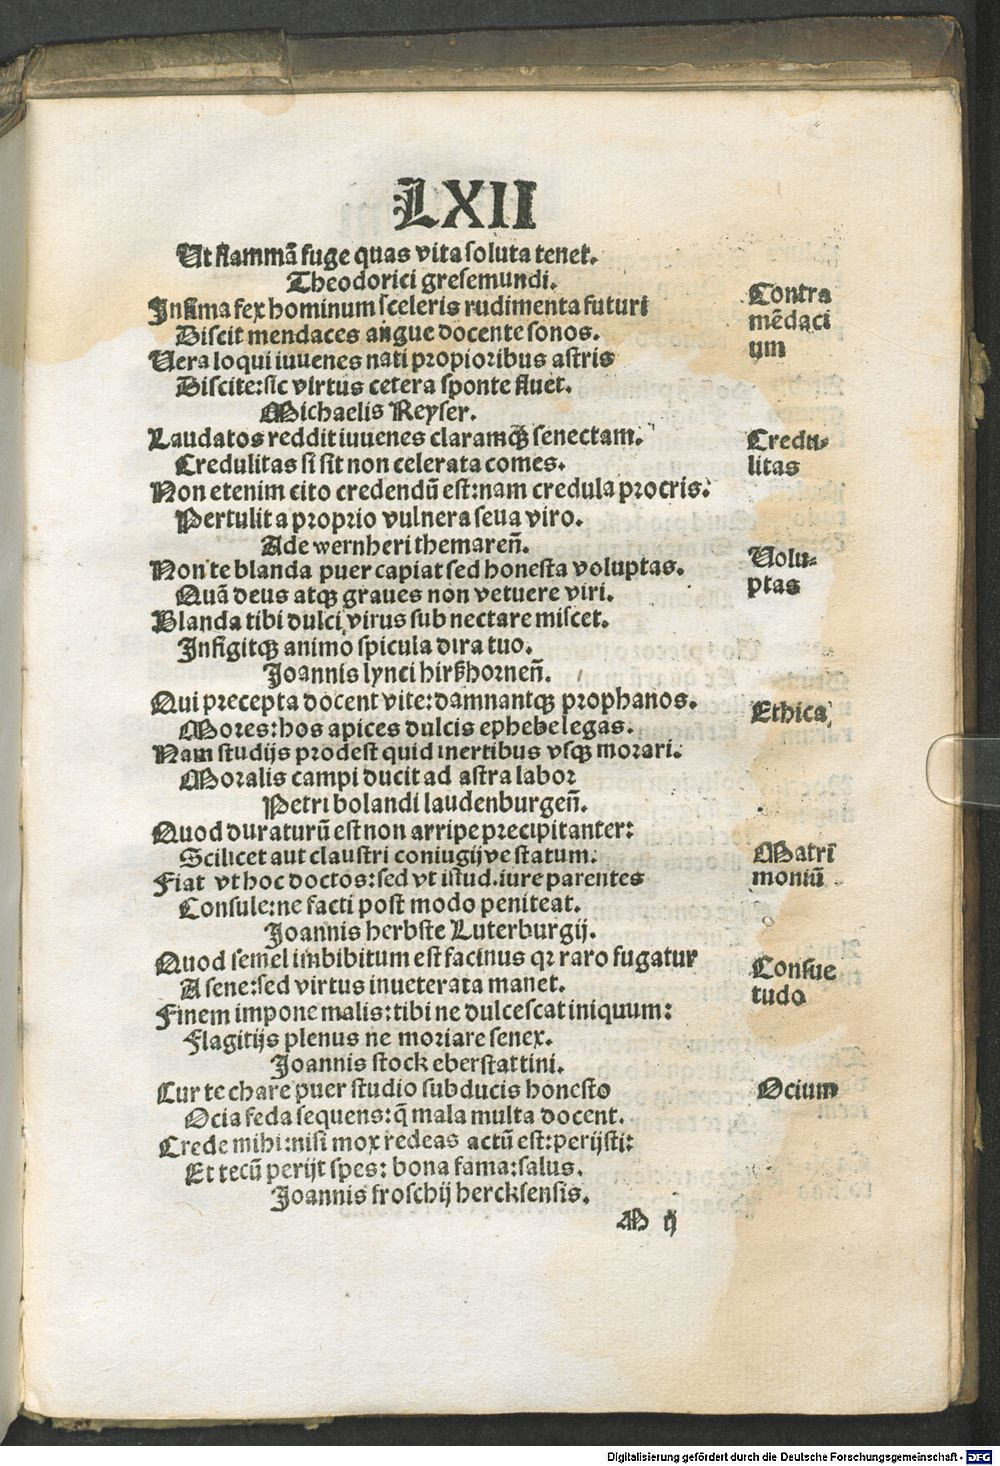 LXII
Ut flammā fuge quas vita soluta tenet.
Theodorici gresemundi.
Infima fex hominum sceleris rudimenta futuri
Discit mendaces angue docente sonos.
Vera loqui iuvenes nati propioribus astris
Discite: sic virtus cetera sponte fluet.
Contra
mēdaci
um
Michaelis Reyser.
Laudatos reddit iuvenes claramqȝ senectam.
Credulitas si sit non celerata comes.
Non etenim cito credendū est: nam credula procris.
Pertulit a proprio vulnera seva viro.
Credu-
litas
Ade wernheri themareñ.
Non te blanda puer capiat sed honesta voluptas.
Quā deus atqȝ graues non vetuere viri.
Blanda tibi dulci virus sub nectare miscet.
Infigitqȝ animo spicula dira tuo.
Volu-
ptas
Joannis lynci hirßhorneñ.
Qui precepta docent vite: damnantqȝ prophanos.
Mores: hos apices dulcis ephebe legas.
Nam studijs prodest quid inertibus vsqȝ morari.
Moralis campi ducit ad astra labor
Ethica
Petri bolandi laudenburgeñ.
Quod duraturū est non arripe precipitanter:
Scilicet aut claustri coniugij ve statum.
Fiat vt hoc doctos: sed vt istud. iure parentes
Consule: ne facti post modo peniteat.
Matri
moniū
Joannis herbste Luterburgij.
Quod semel imbibitum est facinus qꝛ raro fugatur
A sene: sed virtus inueterata manet.
Finem impone malis: tibi ne dulcescat iniquum:
Flagitijs plenus ne moriare senex.
Consue
tudo
Joannis stock eberstattini.
Cur te chare puer studio subducis honesto
Ocia feda sequens: q̄ mala multa docent.
Crede mihi: nisi mox redeas actū est: perijsti:
Et tecū perijt spes: bona fama: salus.
Ocium
Joannis froschij hercksensis.
M ij
Digitalisierung gefördert durch die Deutsche Forschungsgemeinschaft - DFG